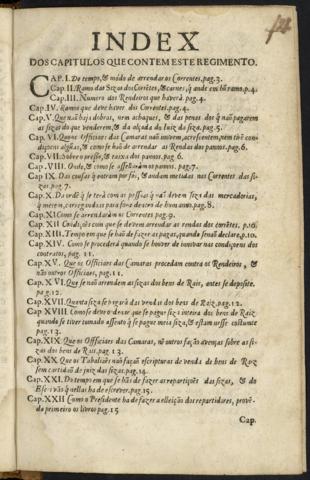 INDEX
DOS CAPITULOS QUE CONTEM ESTE REGIMENTO.
CAP. I. Do tempo, & módo de arrendar os Correntes, pag.3.
Cap. II. Ramo das Sizas dos Corrẽtes, & carnes, q̃ ande em hũ ramo. p.4.
Cap. III. Numero dos Rendeiros que haverà. pag.4.
Cap. IV. Ramos que deve haver dos Correntes. pag.4.
Cap. V. Que nã hajs dobras, nem achaques, & das penas dos q̃ naõ pagarem
as sizas do que venderem, & da alçada do Iuiz da siza. pag.5.
Cap. VI. Que os Officiaes das Camaras naõ innovem, acrescentem, nem tirẽ con-
diçoens algũas, & como se haõ de arrendar as Rendas dos pannos. pag.6.
Cap. VII. Sobre o presso, & taixa dos pannos. pag.6.
Cap. VIII. Onde, & como se assellaràm os pannos. pag.7.
Cap. IX. Das cousas q̃ entram por foz, & andam metidas nos Correntes das si-
zas. pag.7.
Cap. X. Da ordẽ q̃ se terà com as pessoas q̃ naõ devem siza das mercadorias,
q̃ metem, carregandoas para fóra dentro de hum anno. pag.8.
Cap. XI Como se arrendaràm os Correntes pag.9.
Cap. XII Cõdiçoẽs com que se devem arrendar as rendas dos corrẽtes. p.10.
Cap. XIII. Tempo em que se haõ de fazer as pagas, quando senaõ declare. p.10.
Cap. XIV. Como se procederá quando se houver de innovar nas condiçoens dos
contratos, pag. 11.
Cap. XV. Que os Officiaes das Camaras procedam contra os Rendeiros, &
não outros Officiaes, pag. 11.
Cap. XVI. Que se nào arrendem as sizas dos bens de Rais, antes se deposite.
pag. 12.
Cap. XVII. Quanta siza se pagará das vendas dos bens de Raiz, pag. 12.
Cap. XVIII. Como se deve o dever que se pagar siza inteira dos bens de Raiz
quando se tiver tomado assento q̃ se pague meia siza, & estam nesse costume
pag. 13.
Cap. XIX. Que os Officiaes das Camaras, nẽ outros façaõ avenças sobre as si-
zas dos bens de Rais. pag 13.
Cap. XX. Que os Tabaliães naõ façaõ escripturas de venda de bens de Raiz
sem certidaõ do juiz das sizas. pag.14.
Cap. XXI. Do tempo em que se haõ de fazer as repartiçoẽs das sizas, & do
Escrivaõ q̃ nellas ha de escrever. pag 15.
Cap. XXII Como o Presidente ha de fazer a elleiçaõ dos repartidores, provẽ-
do primeiro os livros pag.15
Cap.